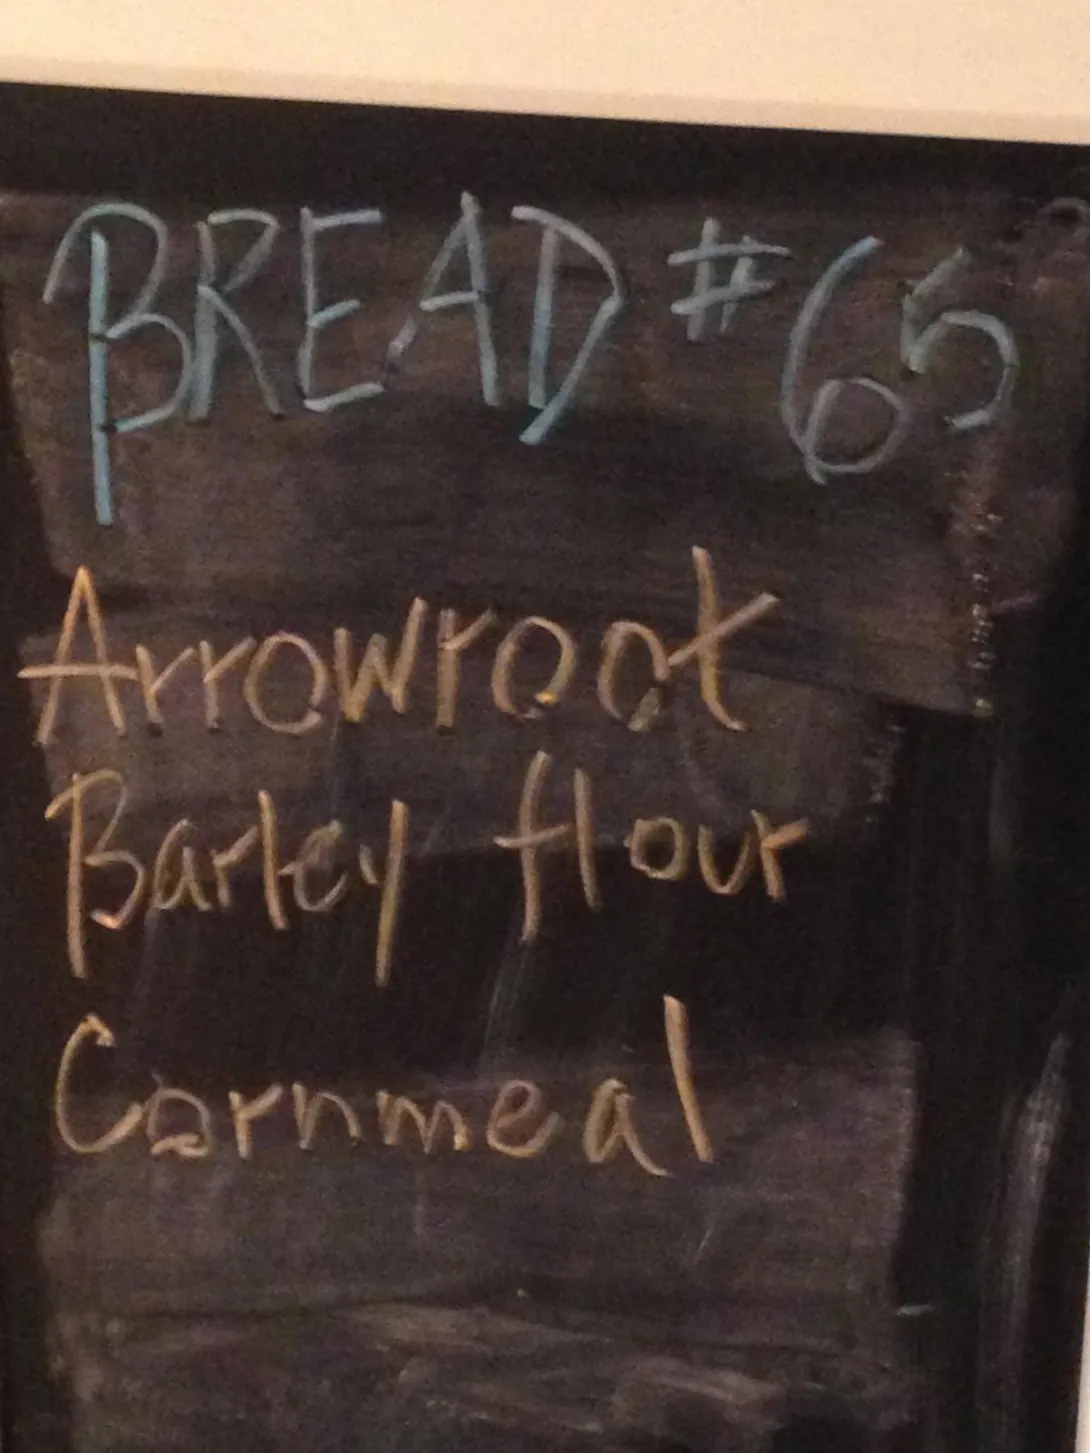 BREAD #65
Arrowroot
Barley flour
Cornmeal